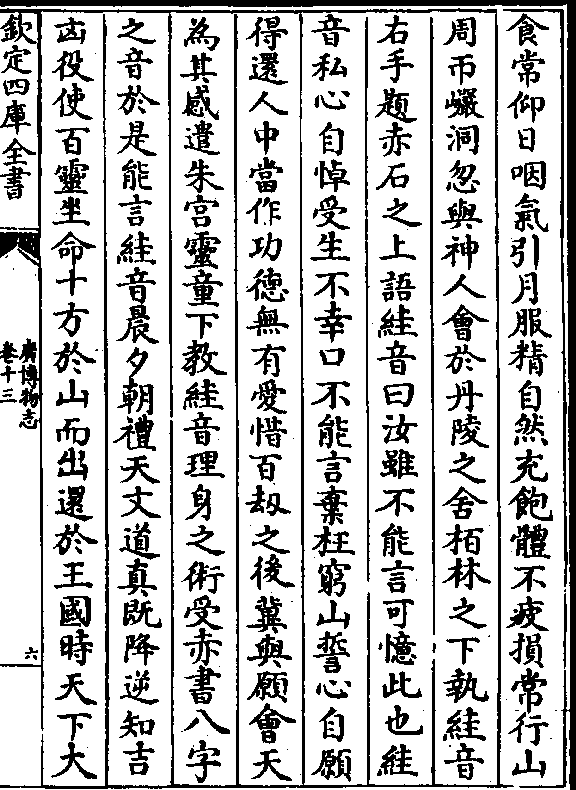 食常仰日咽氣引月服精自然充飽體不疲損常行山
周帀巖洞忽與神人會於丹陵之舍栢林之下執絓音
右手題赤石之上語絓音曰汝雖不能言可憶此也絓
音私心自悼受生不幸口不能言棄枉窮山誓心自願
得還人中當作功德無有愛惜百劫之後冀與願會天
為其感遣朱宫靈童下教絓音理身之術受赤書八字
之音於是能言絓音晨夕朝禮天文道真既降逆知吉
凶役使百靈坐命十方於山而出還於王國時天下大
欽定四庫全書
廣博物志
卷十三
六